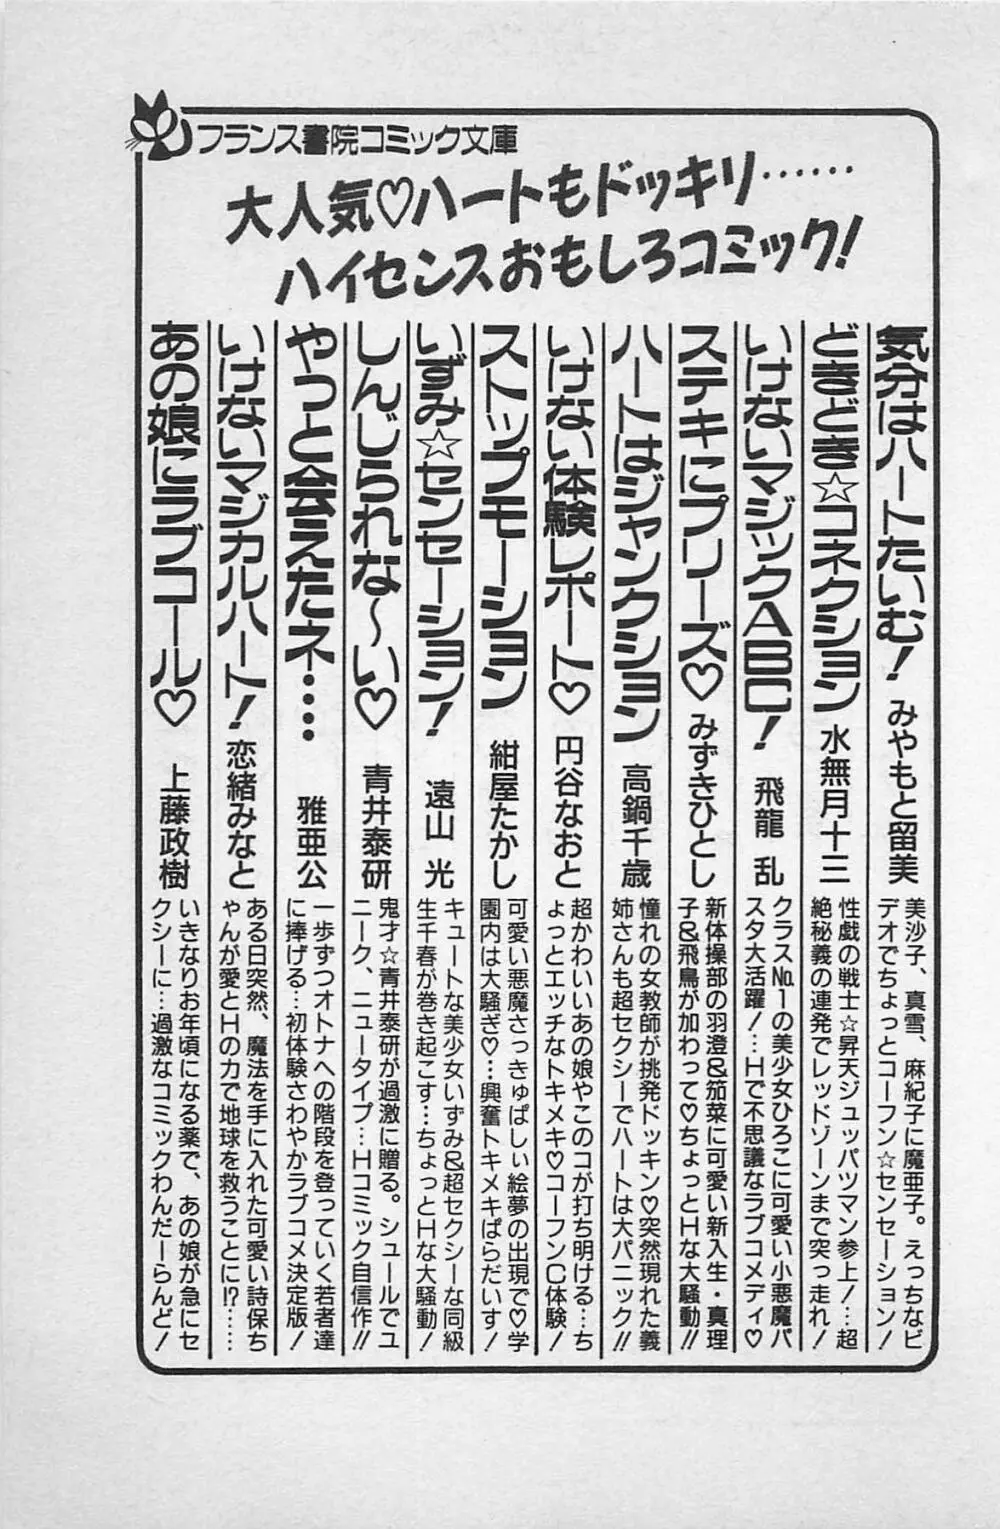 フランス書院コミック文庫
大人気♡ハートもドッキリ……
ハイセンスおもしろコミック!
気分はハートたいむ! みやもと留美
美沙子、真雪、麻紀子に魔亜子。えっちなビ
デオでちょっとコーフン☆センセーション!
どきどき☆コネクション 水無月十三
性戯の戦士☆昇天ジュッパツマン参上!…超
絶秘義の連発でレッドゾーンまで突っ走れ!
いけないマジックABC! 飛龍 乱
クラスNo.1の美少女ひろこに可愛い小悪魔パ
スタ大活躍!…Hで不思議なラブコメディ♡
ステキにプリーズ♡ みずきひとし
新体操部の羽澄&茄菜に可愛い新入生・真理
子&飛鳥が加わって♡ちょっとHな大騒動!!
ハートはジャンクション 高鍋千歳
憧れの女教師が挑発ドッキン♡突然現れた義
姉さんも超セクシーでハートは大パニック!!
いけない体験レポート♡ 円谷なおと
超かわいいあの娘やこのコが打ち明ける…ち
ょっとエッチなトキメキ♡コーフンC体験!
ストップモーション 紺屋たかし
可愛い悪魔さっきゅぱしい絵夢の出現で♡学
園内は大騒ぎ♡…興奮トキメキぱらだいす!
いずみ☆センセーション! 遠山 光
キュートな美少女いずみ&超セクシーな同級
生千春が巻き起こす…ちょっとHな大騒動!
しんじられな〜い♡ 青井泰研
鬼才☆青井泰研が過激に贈る。シュールでユ
ニーク、ニュータイプ…Hコミック自信作!!
やっと会えたネ…… 雅亜公
一歩ずつオトナへの階段を登っていく若者達
に捧げる…初体験さわやかラブコメ決定版!
いけないマジカルハート! 恋緒みなと
ある日突然、魔法を手に入れた可愛い詩保ち
ゃんが愛とHの力で地球を救うことに!?……
あの娘にラブコール♡ 上藤政樹
いきなりお年頃になる薬で、あの娘が急にセ
クシーに…過激なコミックわんだーらんど!